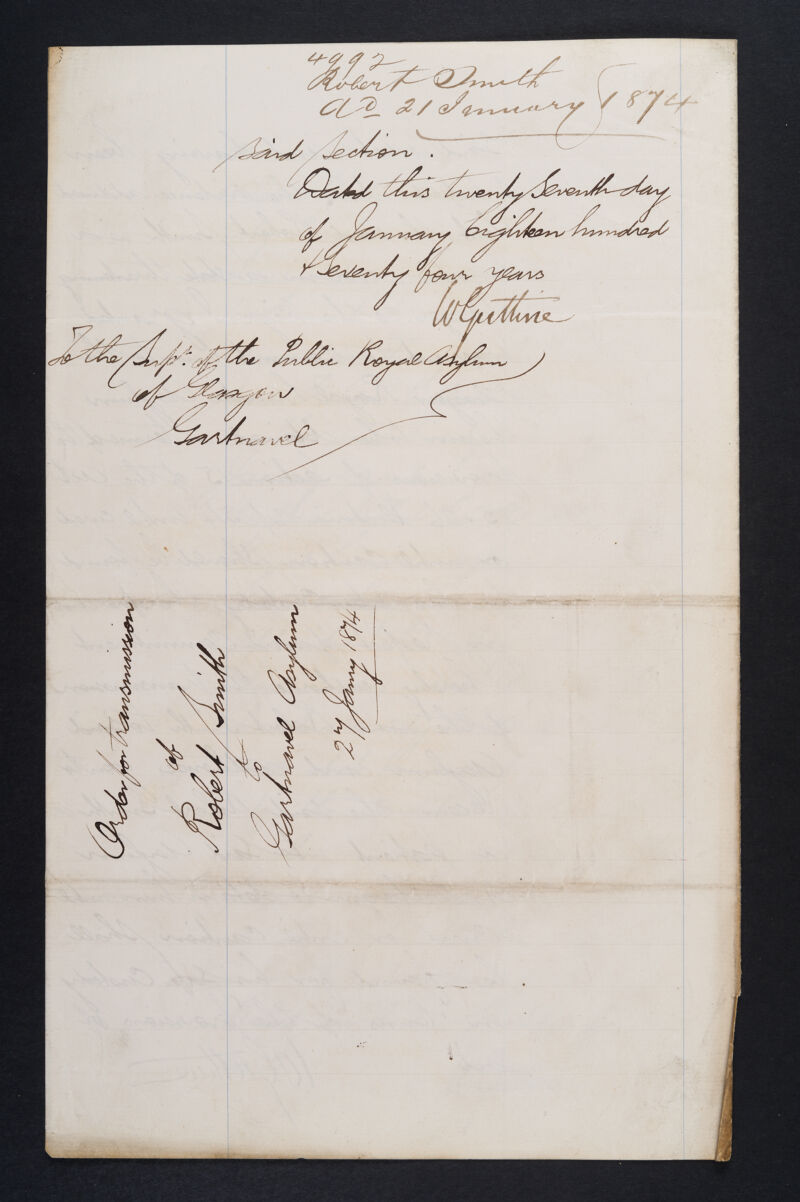 4992
Robert Smith
Ad 21 January 1874
said section.
Dated this twenty seventh day
of January Eighteen hundred
& seventy four years
To the Supt. of the Public Royal Asylum
of Glasgow
Gartnavel
Order for transmission
of
Robert Smith
to
Gartnavel Asylum
27 Jany 1874